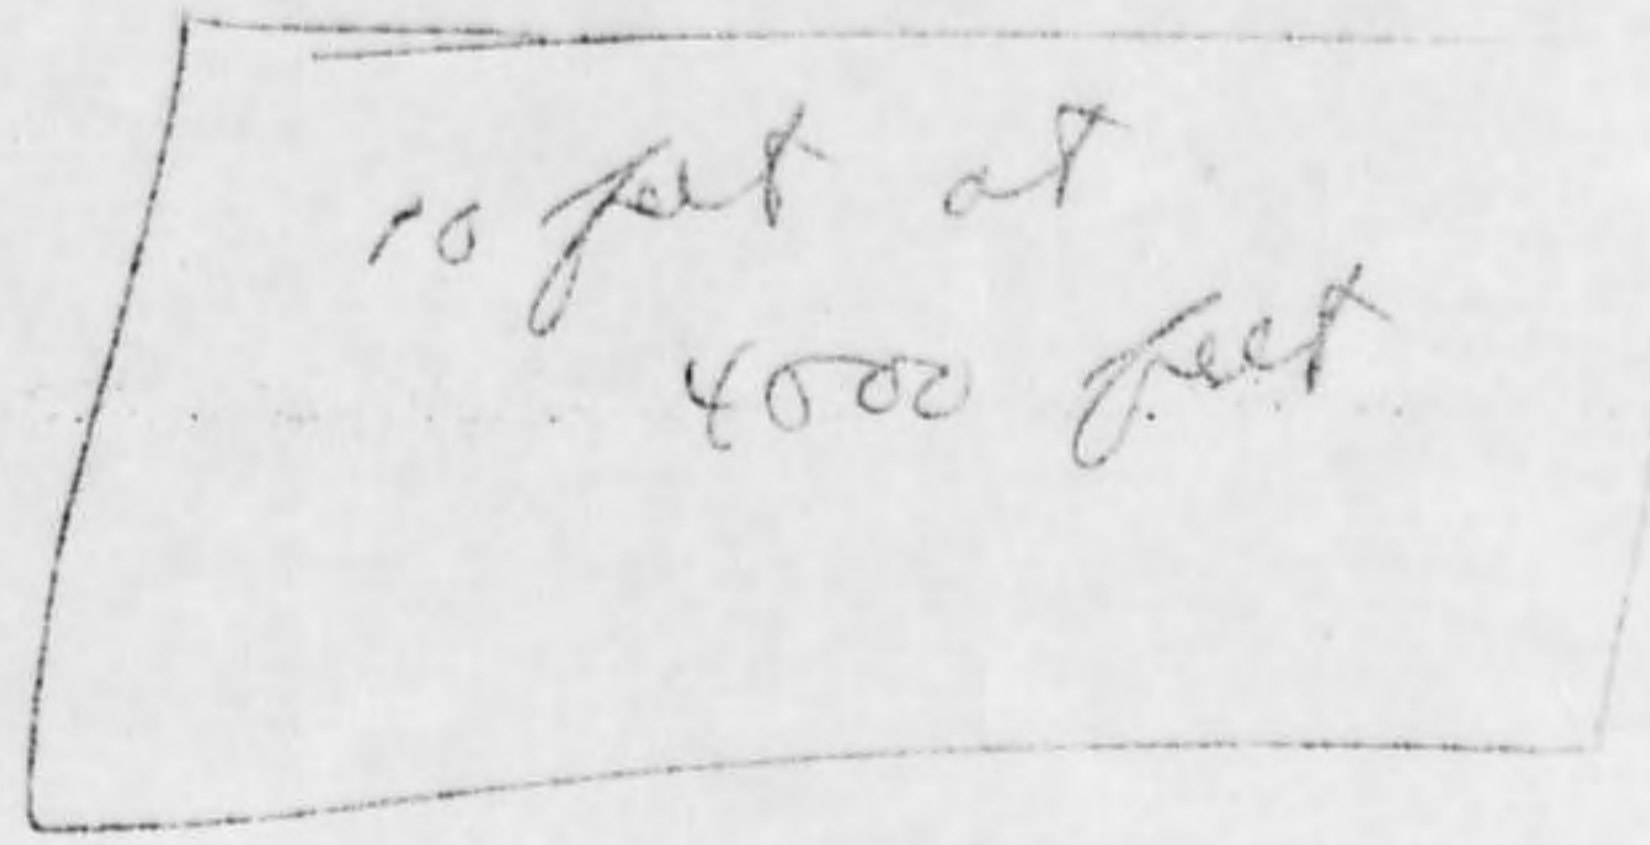 10 feet at
4000 feet